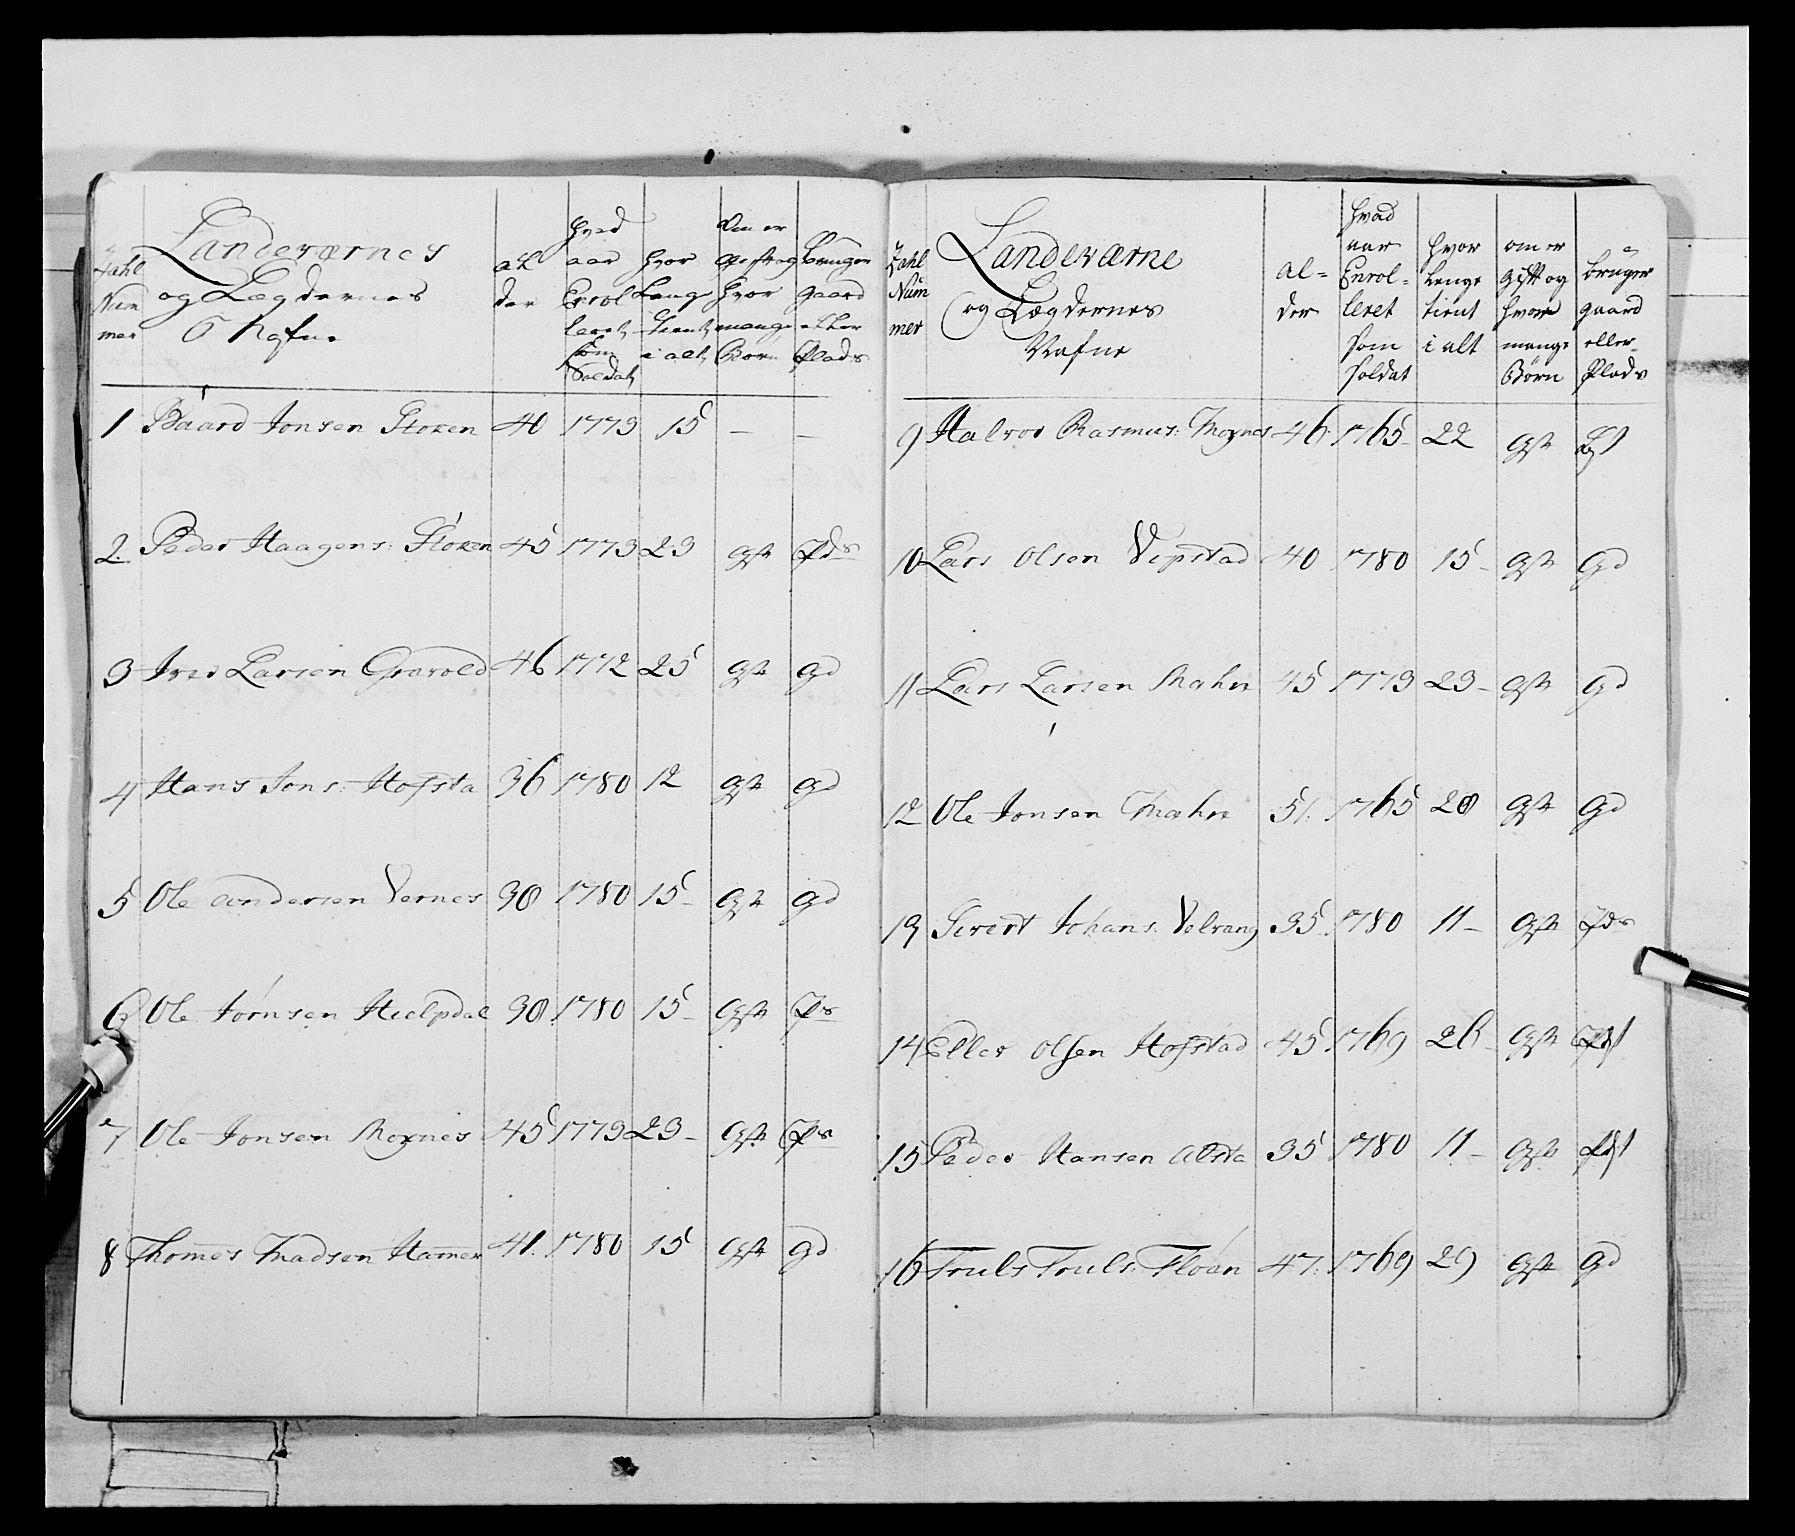 Zahl Num mer
Landeværnes og Lægdernes Nafne
al der
hvad aar Enrol leret som Soldat
hvor Lenge tient i alt
Om er gift og hvor mange Børn
bruger gaard eller Plads
1 Baard Jonsen Stoxen 40 1773 15 — —
2. Peder Haagens: Stoxen 45 1773 23 gft Pds
3 Iver Larsen Gravold 46 1772 25 gft gd
4 Hans Jons: Hofsta 36 1780 12 gft gd
5 Ole andersen Vernes 38 1780 15 gft gd
6 Ole Jörnsen Hielpdal 38 1780 15 gft Ps
7 Ole Jonsen Moxnes 45 1773 23 gft Ps
8 Thomes Madsen Hamer 41. 1780 15 gft gd
Zahl Num mer
Landeværne og Lægdernes Nafne
al= der
hvad aar Enrol= leret som soldat
hvor lenge tient i alt
om er gift og hvor mange Børn
bruger gaard eller Plads
9 Halvor Rasmus: Moxnes 46 1765 22 gft
10 Lars Olsen Vepstad 40 1780 15 gft gd
11 Lars Larsen Mæhre 45 1773 23 gft gd
12 Ole Jonsen Mæhre 51. 1765 28 gft gd
13 Sivert Johans: Velvang 35 1780 11 gft Pds
14 Eller Olsen Hofstad 45 1769 26 gft
15 Peder Hansen Alsta 35 1780 11 gft
16 Truls Truls: Floan 47. 1769 29 gft gd